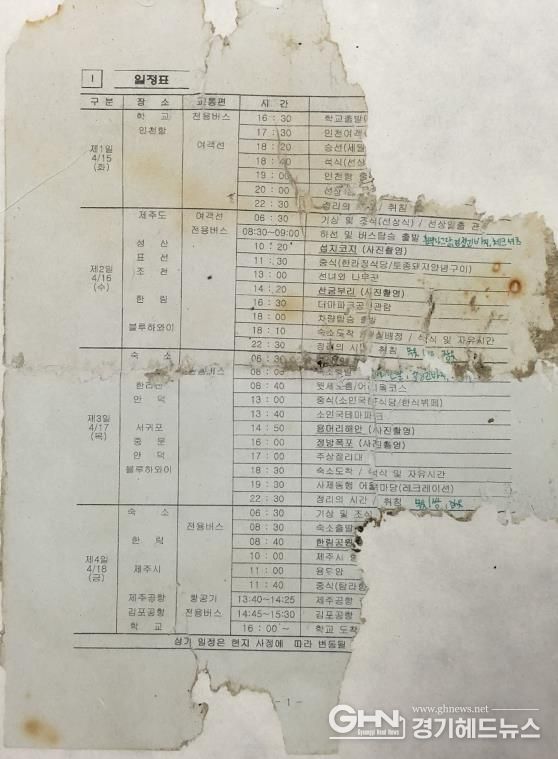 I 일정표
구 분 장 소 교통편 시 간
제1일 4/15 (화)
학 교 전용버스 16 : 30 학교출발(
인천항 17 : 30 인천여객
여객선 18 : 20 승선(세월
18 : 40 석식(선상
19 : 00 인천항 출
20 : 00 선상
22 : 30 정리의 / 취침
제2일 4/16 (수)
제주도 여객선 06 : 30 기상 및 조식(선상식) / 선상일출 관
전용버스 08:30~09:00 하선 및 버스탑승 출발
성 산 10 : 20 섭지코지 (사진촬영)
표 선 11 : 30 중식(한라정식당/토종돼지양념구이)
조 천 13 : 00 선녀와 나무꾼
14 : 20 산굼부리 (사진촬영)
한 림 16 : 30 더마파크공연관람
18 : 00 차량탑승 출발
블루하와이 18 : 10 숙소도착 / 실배정 / 석식 및 자유시간
22 : 30 정리의 시간 / 취침
제3일 4/17 (목)
숙 소 06 : 30
08 : 00 숙소출발
한라산 08 : 40 윗세오름/어리목코스
안 덕 13 : 00 중식(소인국 식당/한식뷔페)
13 : 40 소인국테마파크
서귀포 14 : 50 용머리해안 (사진촬영)
중 문 16 : 00 정방폭포 (사진촬영)
안 덕 17 : 00 주상절리대
블루하와이 18 : 30 숙소도착 / 석식 및 자유시간
19 : 30 사제동행 어울 마당(레크레이션)
22 : 30 정리의 시간 / 취침
제4일 4/18 (금)
숙 소 06 : 30 기상 및 조식
전용버스 08 : 30 숙소출발
한 림 08 : 40 한림공원
10 : 00 제주시
제주시 11 : 00 용두암
11 : 40 중식(탐라
제주공항 항공기 13:40~14:25 제주공항
김포공항 전용버스 14:45~15:30 김포공항
학 교 16 : 00 ~ 학교 도착
상기 일정은 현지 사정에 따라 변동될
- 1 -
www.ghnews.net
GHN
Gyeonggi Head News
경기헤드뉴스